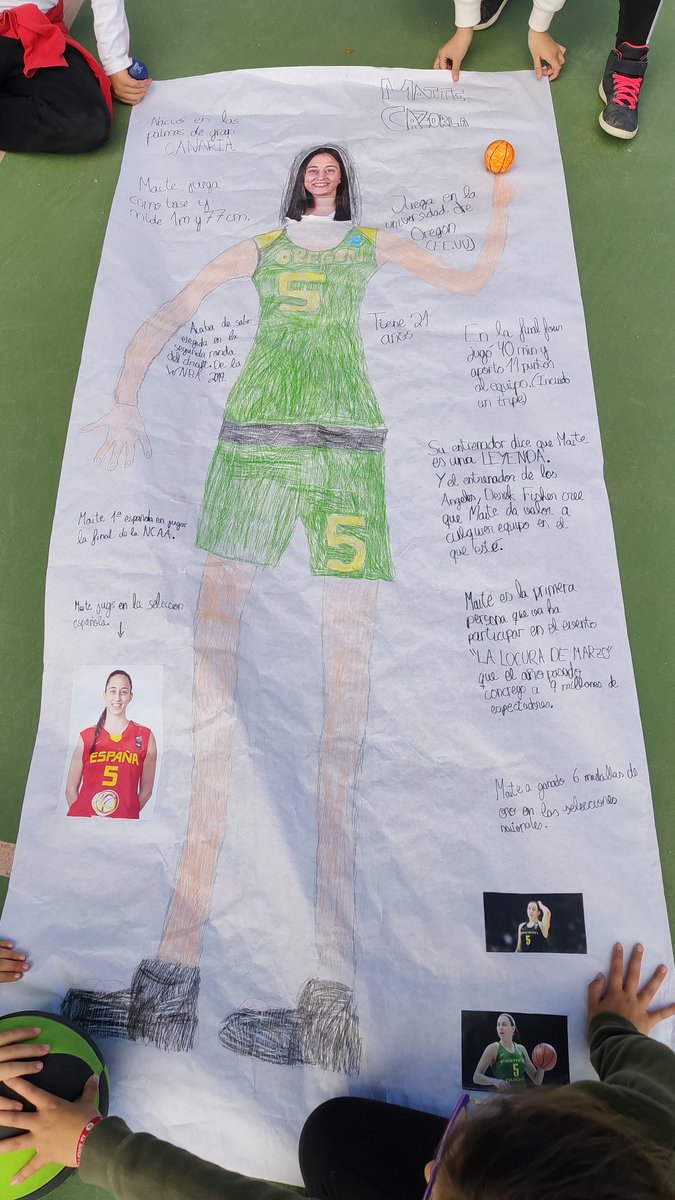 MAITE
CAZORLA
Nació en las
palmas de gran
CANARIA.
Maite juega
como base y
mide 1m y 77cm.
Juega en la
universidad de
Oregon
(EE.UU)
OREGON
5
Acaba de salir
elegida en la
segunda ronda
del draft. De la
WNBA 2019.
Tiene 21
años
En la final four
jugo 40 min y
aporto 11 puntos
al equipo. (Incluido
un triple)
Su entrenador dice que Maite
es una LEYENDA.
Y el entrenador de los
Angeles, Derek Fisher cree
que Maite da valor a
cualquier equipo en el
que esté.
5
Maite 1ª española en jugar
la final de la NCAA.
Maite jugo en la seleccion
española.
Maite es la primera
persona que va ha
participar en el evento
"LA LOCURA DE MARZO"
que el año pasado
congrego a 9 millones de
espectadores.
ESPAÑA
5
Maite a ganado 6 medallas de
oro en las selecciones
nacionales.
5
5